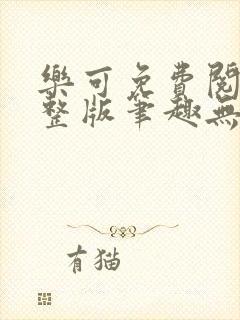 樂可免費閱
整版筆趣無
有猫